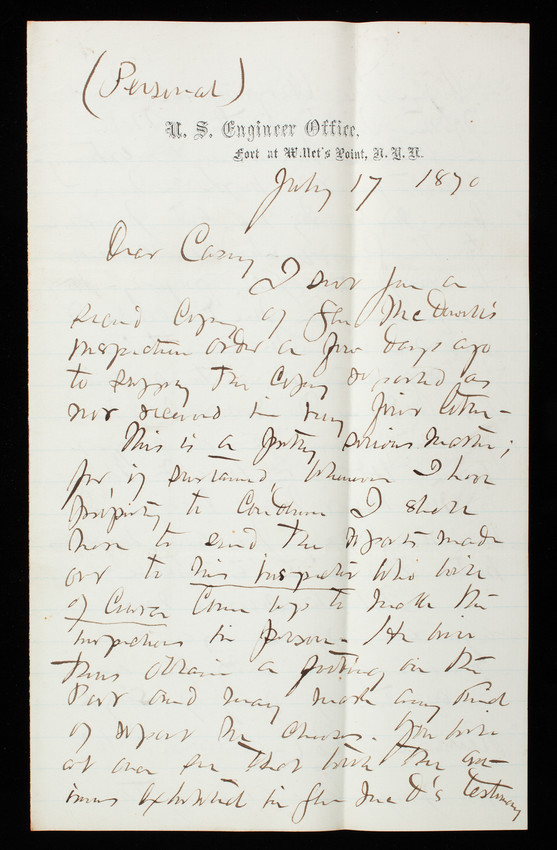 (Personal)
U. S. Engineer Office.
Fort at Willet's Point, N. Y. H.
July 17 1870
Dear Casey
I sent you a
second copy of Gen McDowell's
inspection order a few days ago
to supply the copy reported as
not received in my prior letter -
This is a pretty serious matter;
for if sustained, whenever I have
property to condemn I shall
have to send the reports made
out to his inspector who will
of course come up to make the
inspections in person - He will
thus obtain a footing on the
Post and may make any kind
of report he chooses. You will
at once see that with the
exhibited in Gen McD's testimony